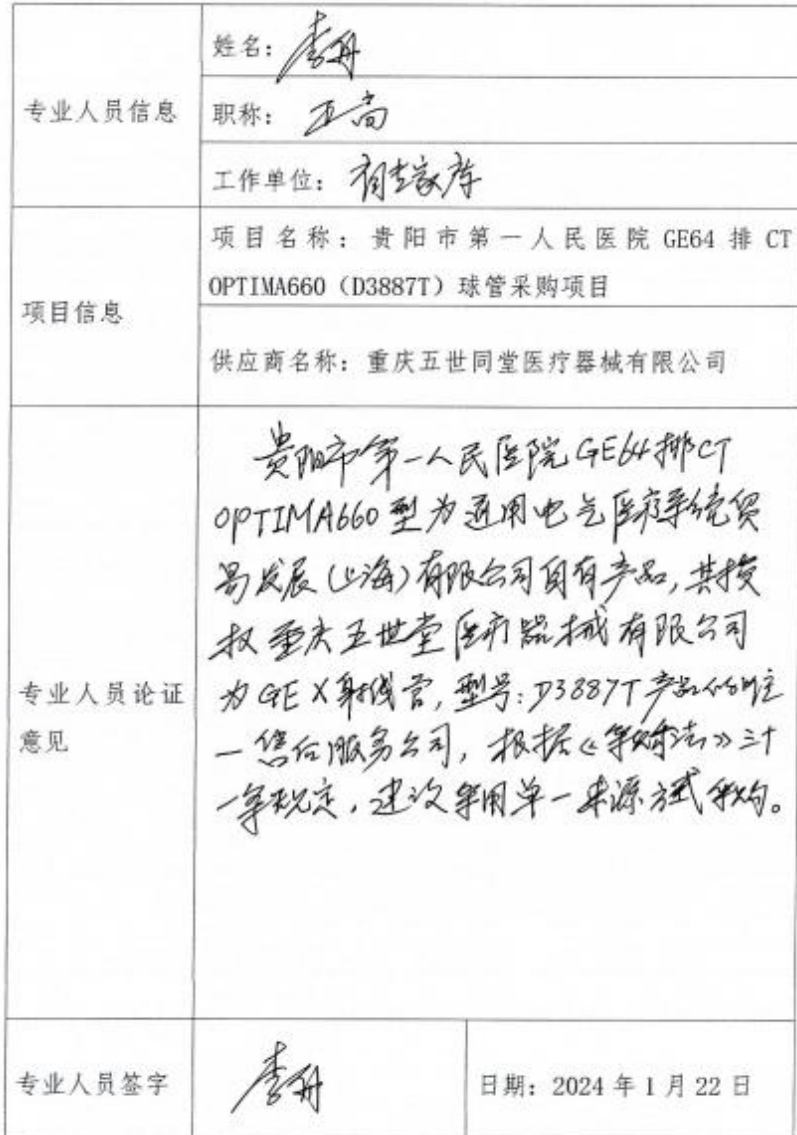 专业人员信息
姓名：李丹
职称：正高
工作单位：省专家库
项目信息
项目名称：贵阳市第一人民医院 GE64 排 CT
OPTIMA660（D3887T）球管采购项目
供应商名称：重庆五世同堂医疗器械有限公司
专业人员论证
意见
贵阳市第一人民医院GE64排CT
OPTIMA660型为通用电气医疗系统贸
易发展(上海)有限公司自有产品,其授
权重庆五世堂医疗器械有限公司
为GE X射线管,型号:D3887T产品的唯
一售后服务公司，根据《采购法》三十
一条规定，建议采用单一来源方式采购。
专业人员签字
李丹
日期：2024 年 1 月 22 日